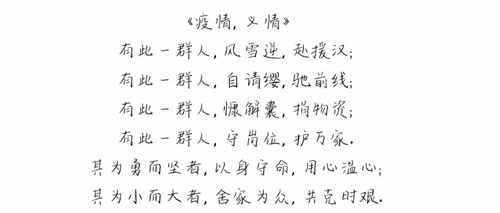 《疫情，义情》
有此一群人，风雪逆，赴援汉；
有此一群人，自请缨，驰前线；
有此一群人，慷解囊，捐物资；
有此一群人，守岗位，护万家。
其为勇而坚者，以身守命，用心温心；
其为小而大者，舍家为众，共克时艰。